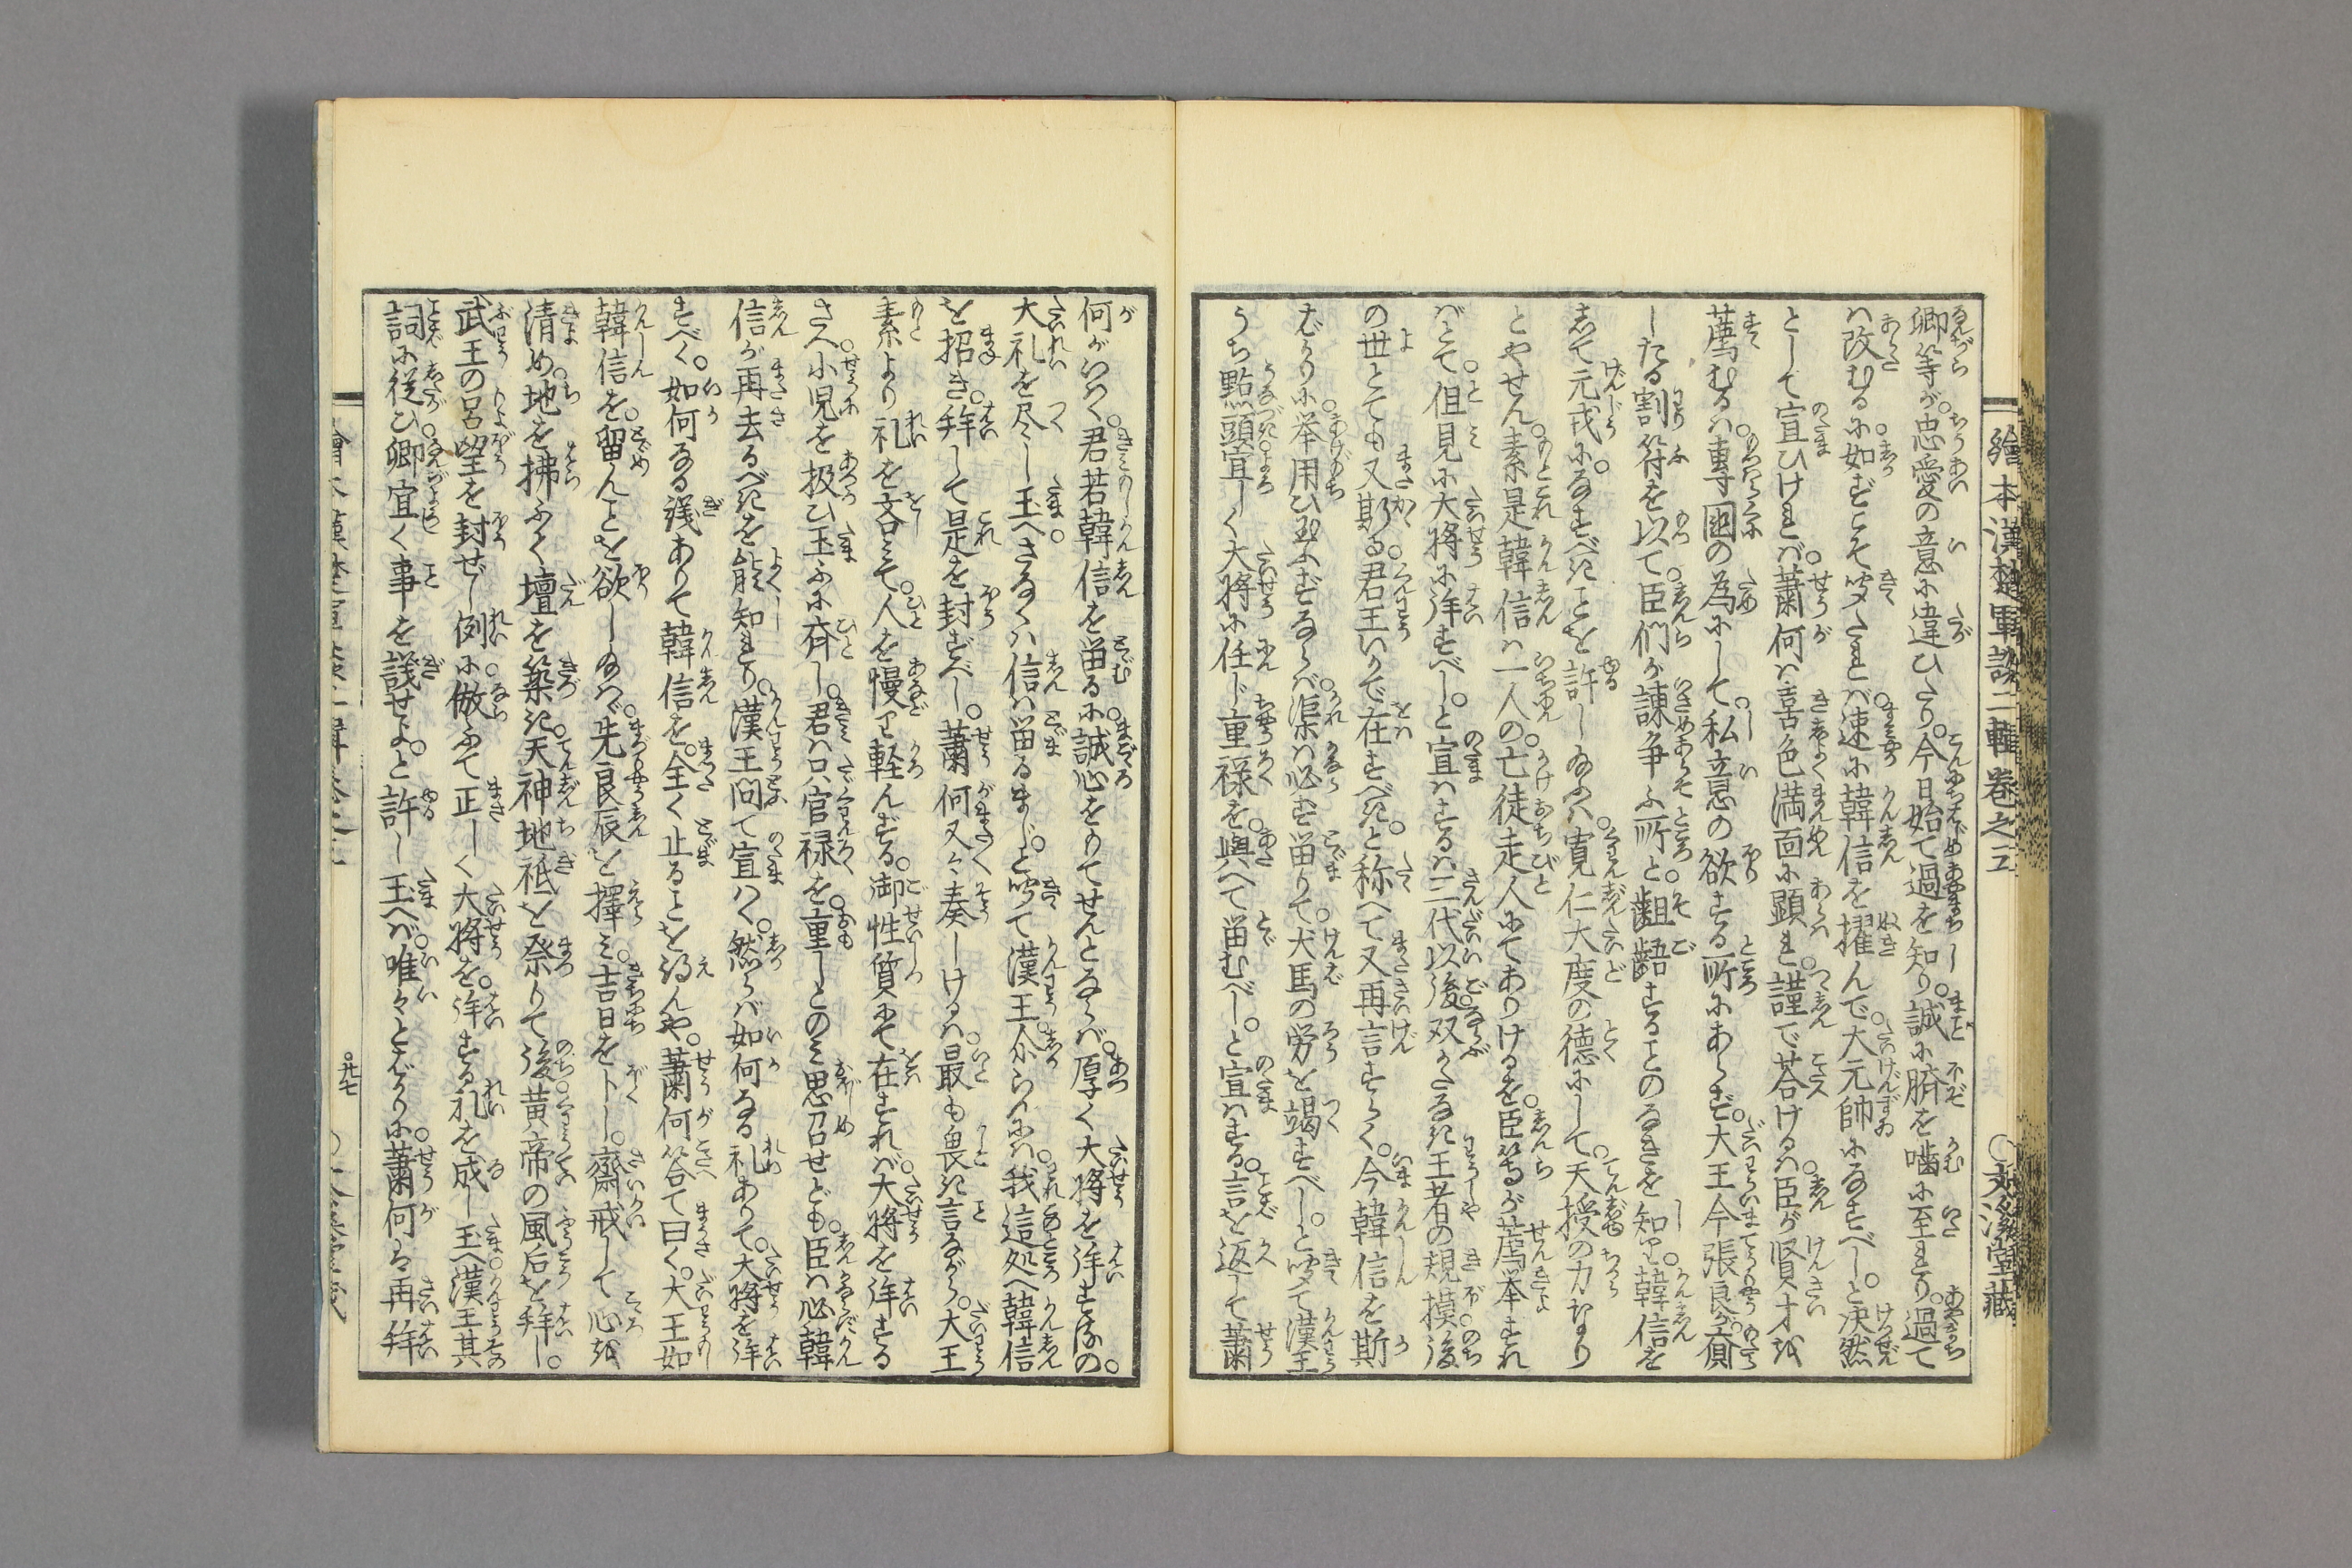 繪本漢楚軍談二輯巻之三
○文溪堂藏
卿等が忠愛の意に違ひたり。今日始て過を知り。誠に臍を噛に至れり。過て
は改むるに如ずとこそ聞たれば。速に韓信を擢んで。大元帥になすべし。と決然
として宣ひければ。蕭何は喜色満面に顕れ。謹で荅ける。臣が賢才を
薦むるは。専國の為にして。私意の欲する所にあらず。大王今張良が齎
したる割符を以て。臣們が諫争ふ所と。齟齬することのなきを知り。韓信を
して元戎に。なすべきことを許し給ふは。寛仁大度の徳にして。天授の力なり
とやせん。素是韓信は一人の亡徒走人にてありけるを。臣等が薦挙すれ
ばとて。但見に大将に拝すべし。と宣はするは三代以後。双びなき王者の規摸。後
の世とても又斯る。君王いかで在すべき。と称へて又再言すらく。今韓信を斯
ばかりに。挙用ひ給はずならば。渠は必ず留りて。犬馬の労を竭すべし。と聞て漢王
うち點頭。宜しく大将に任じ重禄を。與へて留むべし。と宣はする。言を返して蕭
何がいはく。君若韓信を留るに。誠心をもてせんとならば。厚く大将を拝するの。
大礼を尽し玉へ。さなくは信は留るまじ。と聞て漢王。然らんには。我這処へ韓信
を招き。拜して是を封ずべし。蕭何又々奏しけるは。最も畏き言ながら。大王
素より礼を吝みて。人を慢り軽んずる。御性質にて在すれば。大将を拝する
さへ。小児を扱ひ玉ふに斉し。君は只官禄を。重しとのみ思召せども。臣は必韓
信が再去るべきを能知れり。漢王問て宣はく。然らば如何なる礼ありて。大将を拝
すべく。如何なる議ありて韓信を。全く止ることを得んや。蕭何答て曰く。大王如
韓信を。留んとを欲し給はゞ。先良辰を擇み。吉日を卜し。齋戒して心を
清め。地を拂ふく壇を築き。天神地祇を祭りて後。黄帝の風后を拜し。
武王の呂望を封ぜし例に。倣ふて正しく大将を。拝する礼を成し玉へ。漢王其
詞に従ひ。卿宜く事を議せよ。と許し玉へば。唯々とばかりに。蕭何は再拜
○廿七